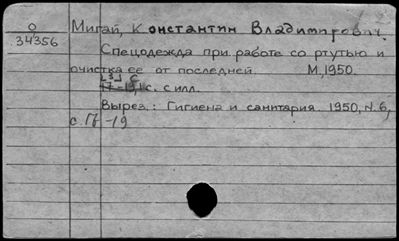 О
34356
Мигай, Константин Владимирович.
Спецодежда при работе со ртутью и
очистка ее от последней. М, 1950.
[3] с.
17-19, с. с илл.
Вырез.: Гигиена и санитария. 1950, N.6,
с. 17 -19